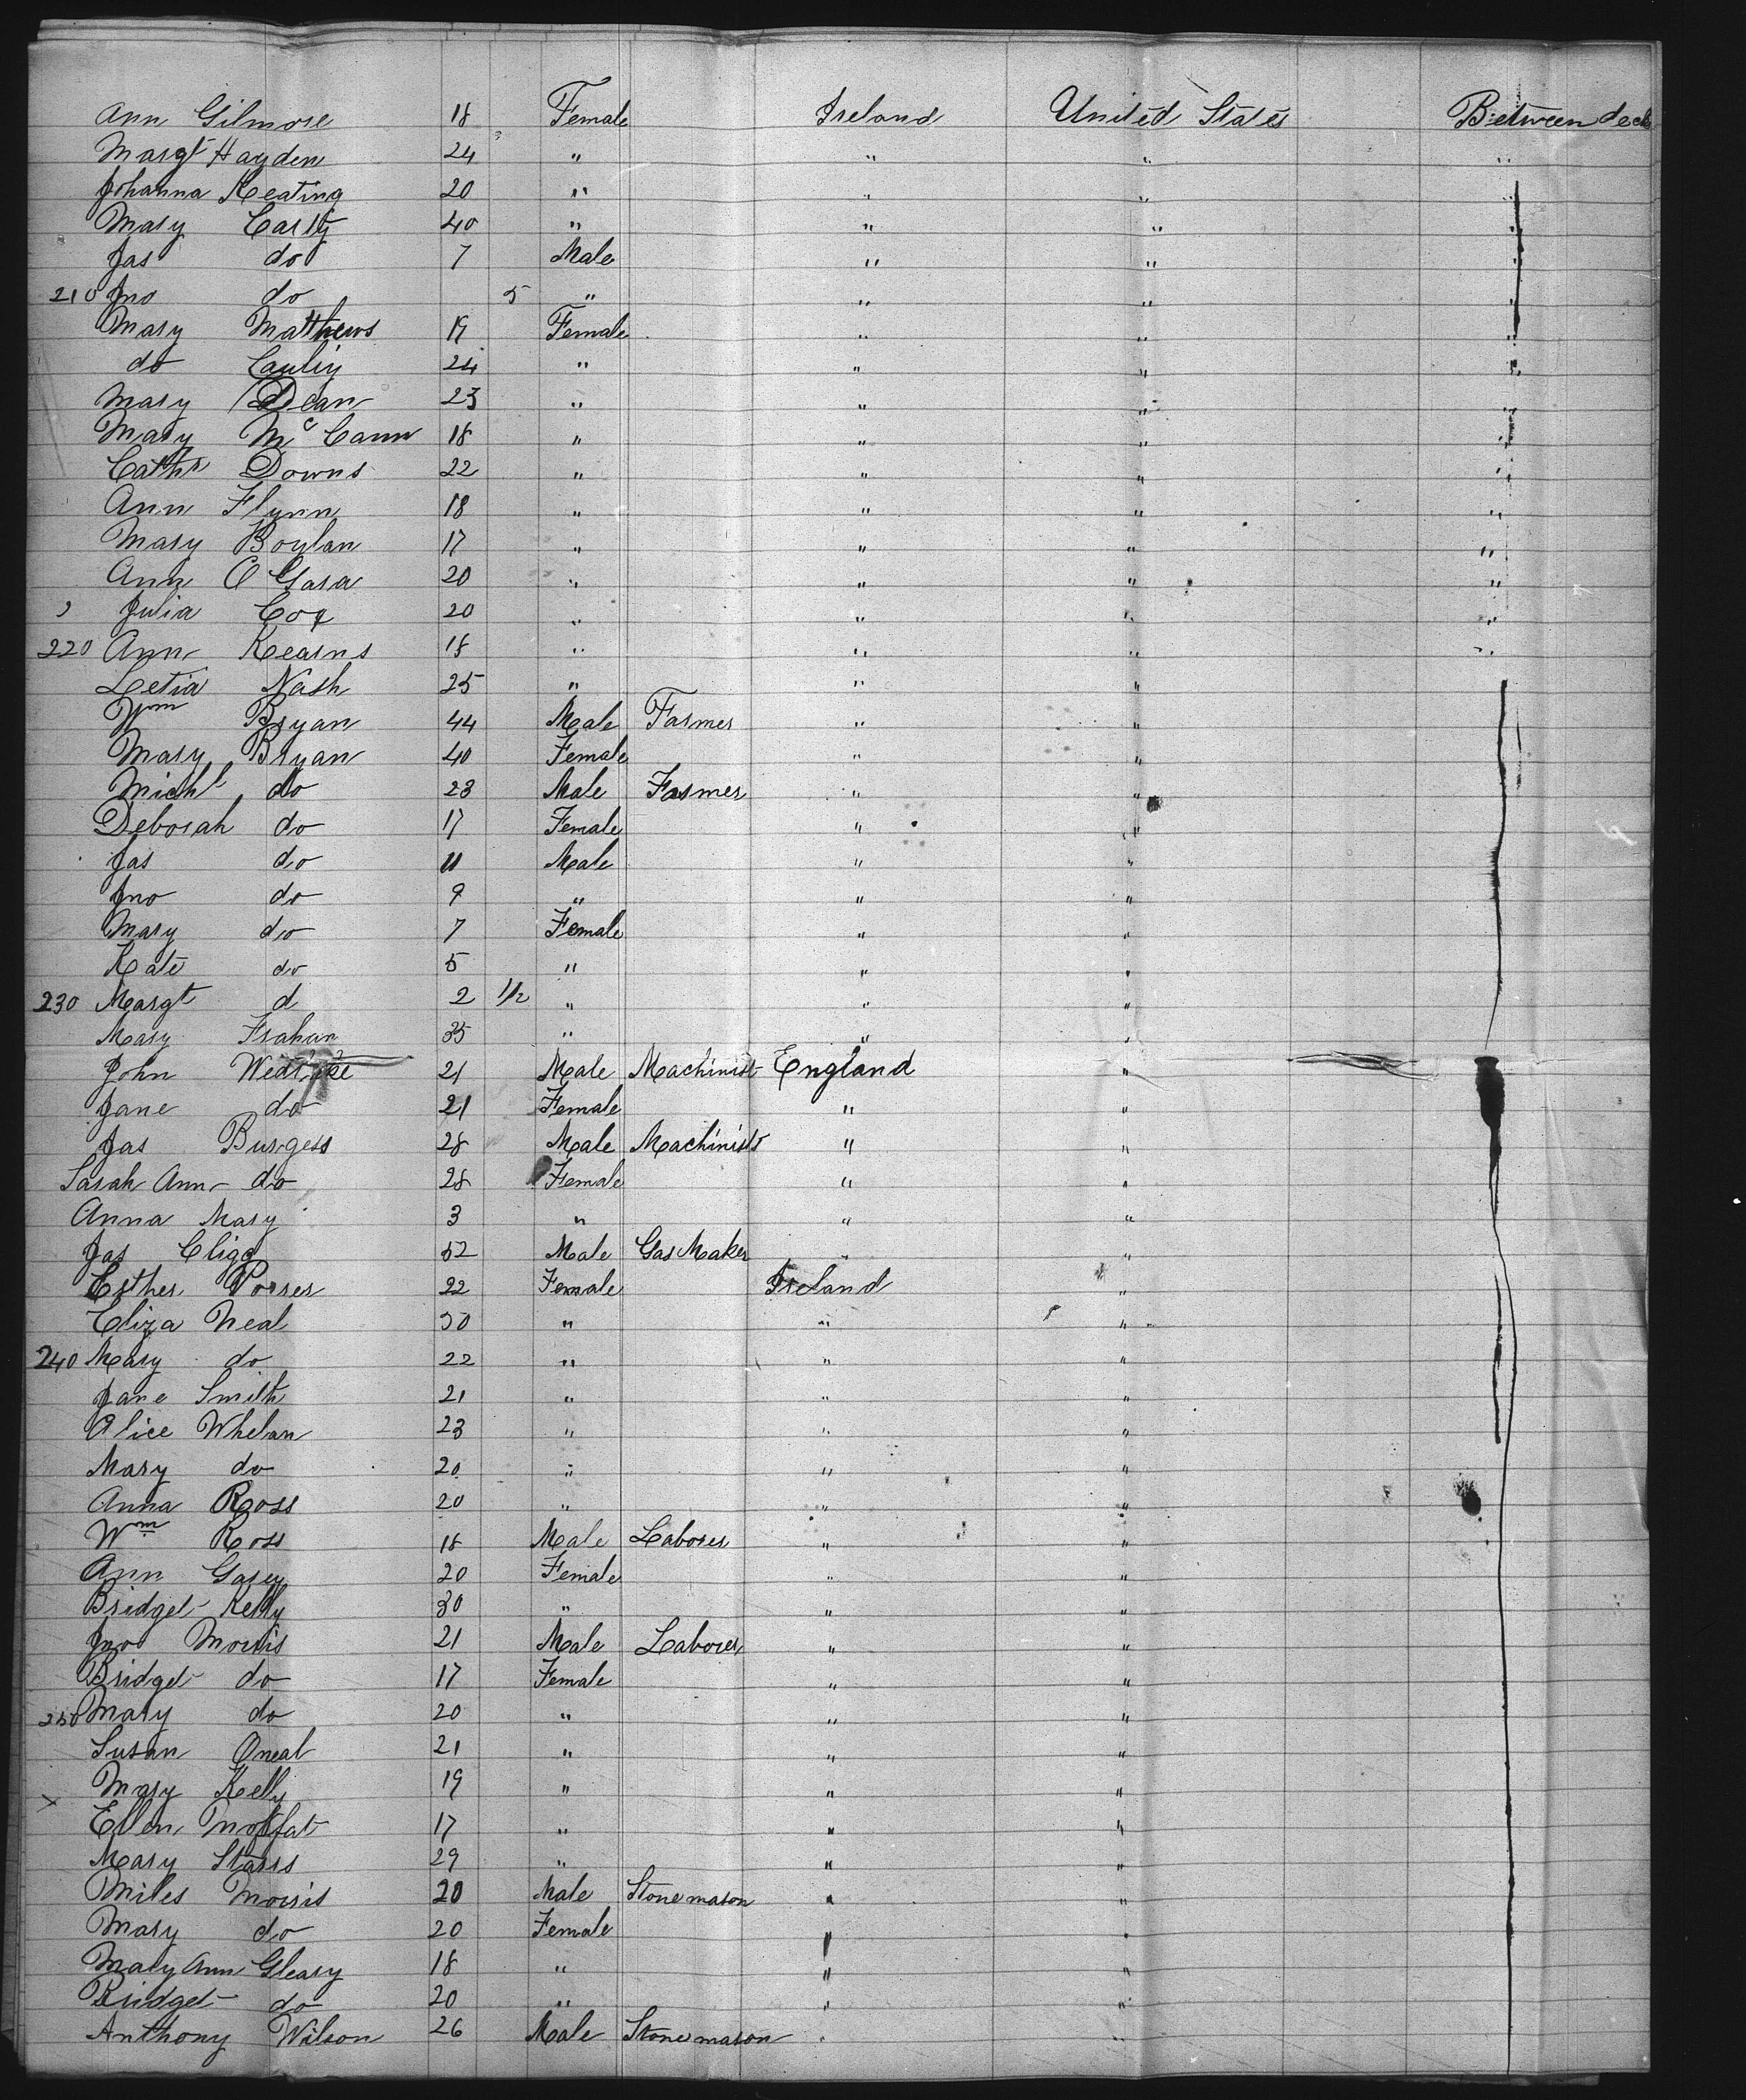 Ann Gilmore 18 Female Ireland United States Between decks
Margt Hayden 24 " " " "
Johanna Keating 20 " " " "
Mary Carty 40 " " " "
Jas do 7 Male " " "
210 Jno do 5 " " " "
Mary Matthews 19 Female " " "
do 24 " " " "
Mary Dean 23 " " " "
Mary McCann 18 " " " "
Cathr Downs 22 " " " "
Ann Flynn 18 " " " "
Mary Boylan 17 " " " "
Ann O Gara 20 " " " "
Julia Cox 20 " " " "
220 Ann Kearns 18 " " " "
Letia Nash 25 " " "
Wm Bryan 44 Male Farmer " "
Mary Bryan 40 Female " "
Michl do 23 Male Farmer " "
Deborah do 17 Female " "
Jas do 11 Male " "
Jno do 9 " " "
Mary do 7 Female " "
Kate do 5 " " "
230 Margt d 2 1/2 " " "
Mary Frahan 35 " " "
John 21 Male Machinist England "
Jane do 21 Female " "
Jas Burgess 28 Male Machinist " "
Sarah Ann do 28 Female " "
Anna Mary 3 " " "
Jas Cligg 52 Male Gas Maker " "
Esther Porrer 22 Female Ireland "
Eliza Neal 50 " " "
240 Mary do 22 " " "
Jane Smith 21 " " "
Alice Whelan 23 " " "
Mary do 20 " " "
Anna Ross 20 " " "
Wm Ross 18 Male Laborer " "
Ann Garey 20 Female " "
Bridget Kelly 30 " " "
Jno Morris 21 Male Laborer " "
Bridget do 17 Female " "
250 Mary do 20 " " "
Susan Oneal 21 " " "
x Mary Kelly 19 " " "
Ellen Moffat 17 " " "
Mary Starrs 29 " " "
Miles Morris 20 Male Stone mason " "
Mary do 20 Female " "
Mary Ann Gleary 18 " " "
Bridget do 20 " " "
Anthony Wilson 26 Male Stone mason " "